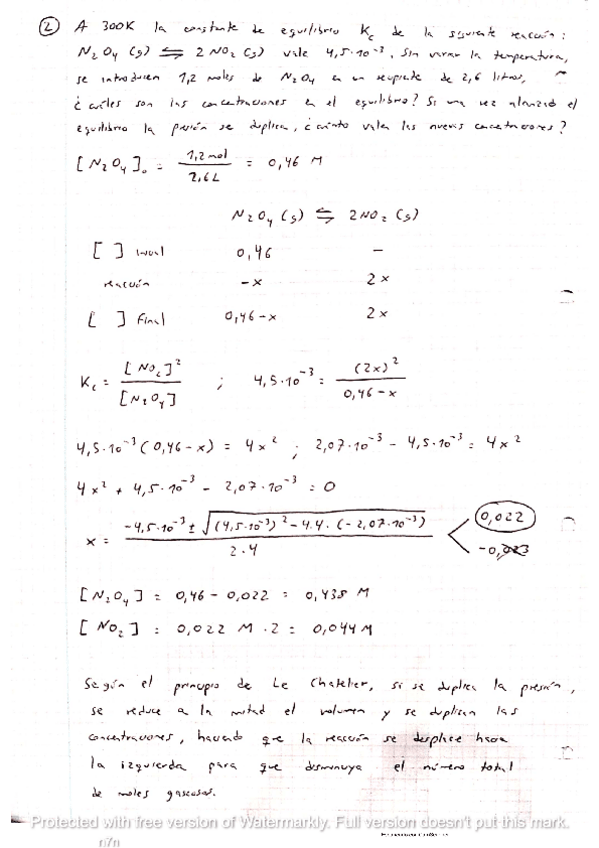 ② A 300K la constante de equilibrio Kc de la siguiente reacción:
N₂O₄ (g) ⇌ 2 NO₂ (g) vale 4,5·10⁻³. Sin variar la temperatura,
se introducen 1,2 moles de N₂O₄ en un recipiente de 2,6 litros,
¿cuáles son las concentraciones en el equilibrio? Si una vez alcanzado el
equilibrio la presión se duplica, ¿cuánto valen las nuevas concentraciones?
[N₂O₄]₀ = 1,2 mol / 2,6 L = 0,46 M
N₂O₄ (g) ⇌ 2NO₂ (g)
[ ] inicial 0,46 –
reacción -x 2x
[ ] final 0,46-x 2x
Kc = [NO₂]² / [N₂O₄] ; 4,5·10⁻³ = (2x)² / 0,46-x
4,5·10⁻³ (0,46-x) = 4x² ; 2,07·10⁻³ - 4,5·10⁻³ = 4x²
4x² + 4,5·10⁻³ - 2,07·10⁻³ = 0
x = -4,5·10⁻³ ± √(4,5·10⁻³)² - 4·4·(-2,07·10⁻³) / 2·4 < 0,022
-0,023
[N₂O₄] = 0,46 - 0,022 = 0,438 M
[NO₂] = 0,022 M · 2 = 0,044 M
Según el principio de Le Chatelier, si se duplica la presión,
se reduce a la mitad el volumen y se duplican las
concentraciones, haciendo que la reacción se desplace hacia
la izquierda para que disminuya el número total
de moles gaseosos.
Protected with free version of Watermarkly. Full version doesn't put this mark.